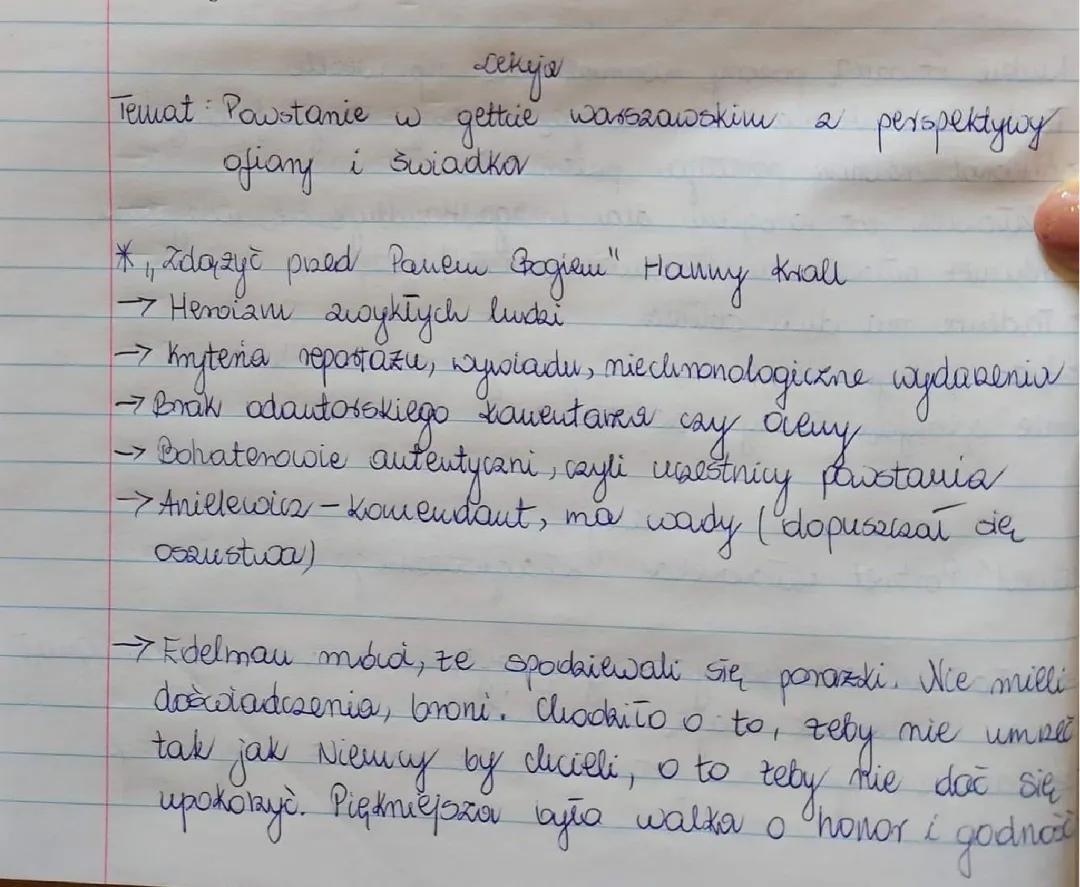 Lekcja
Temat: Powstanie w gettcie warszawskim z perspektywy
ofiary i świadka
* „Zdążyć przed Panem Bogiem" Hanny Krall
→ Heroizm zwykłych ludzi
→ Kryteria reportażu, wywiadu, niechronologiczne wydarzenia
→ Brak odautorskiego komentarza czy oceny
→ Bohaterowie autentyczni, czyli uczestnicy powstania
→ Anielewicz – komendant, ma wady (dopuszczał się
oszustwa)
→ Edelman mówi, że spodziewali się porażki. Nie mieli
doświadczenia, broni. Chodziło o to, żeby nie umrzeć
tak jak Niemcy by chcieli, o to żeby nie dać się
upokorzyć. Piękniejsza była walka o honor i godność